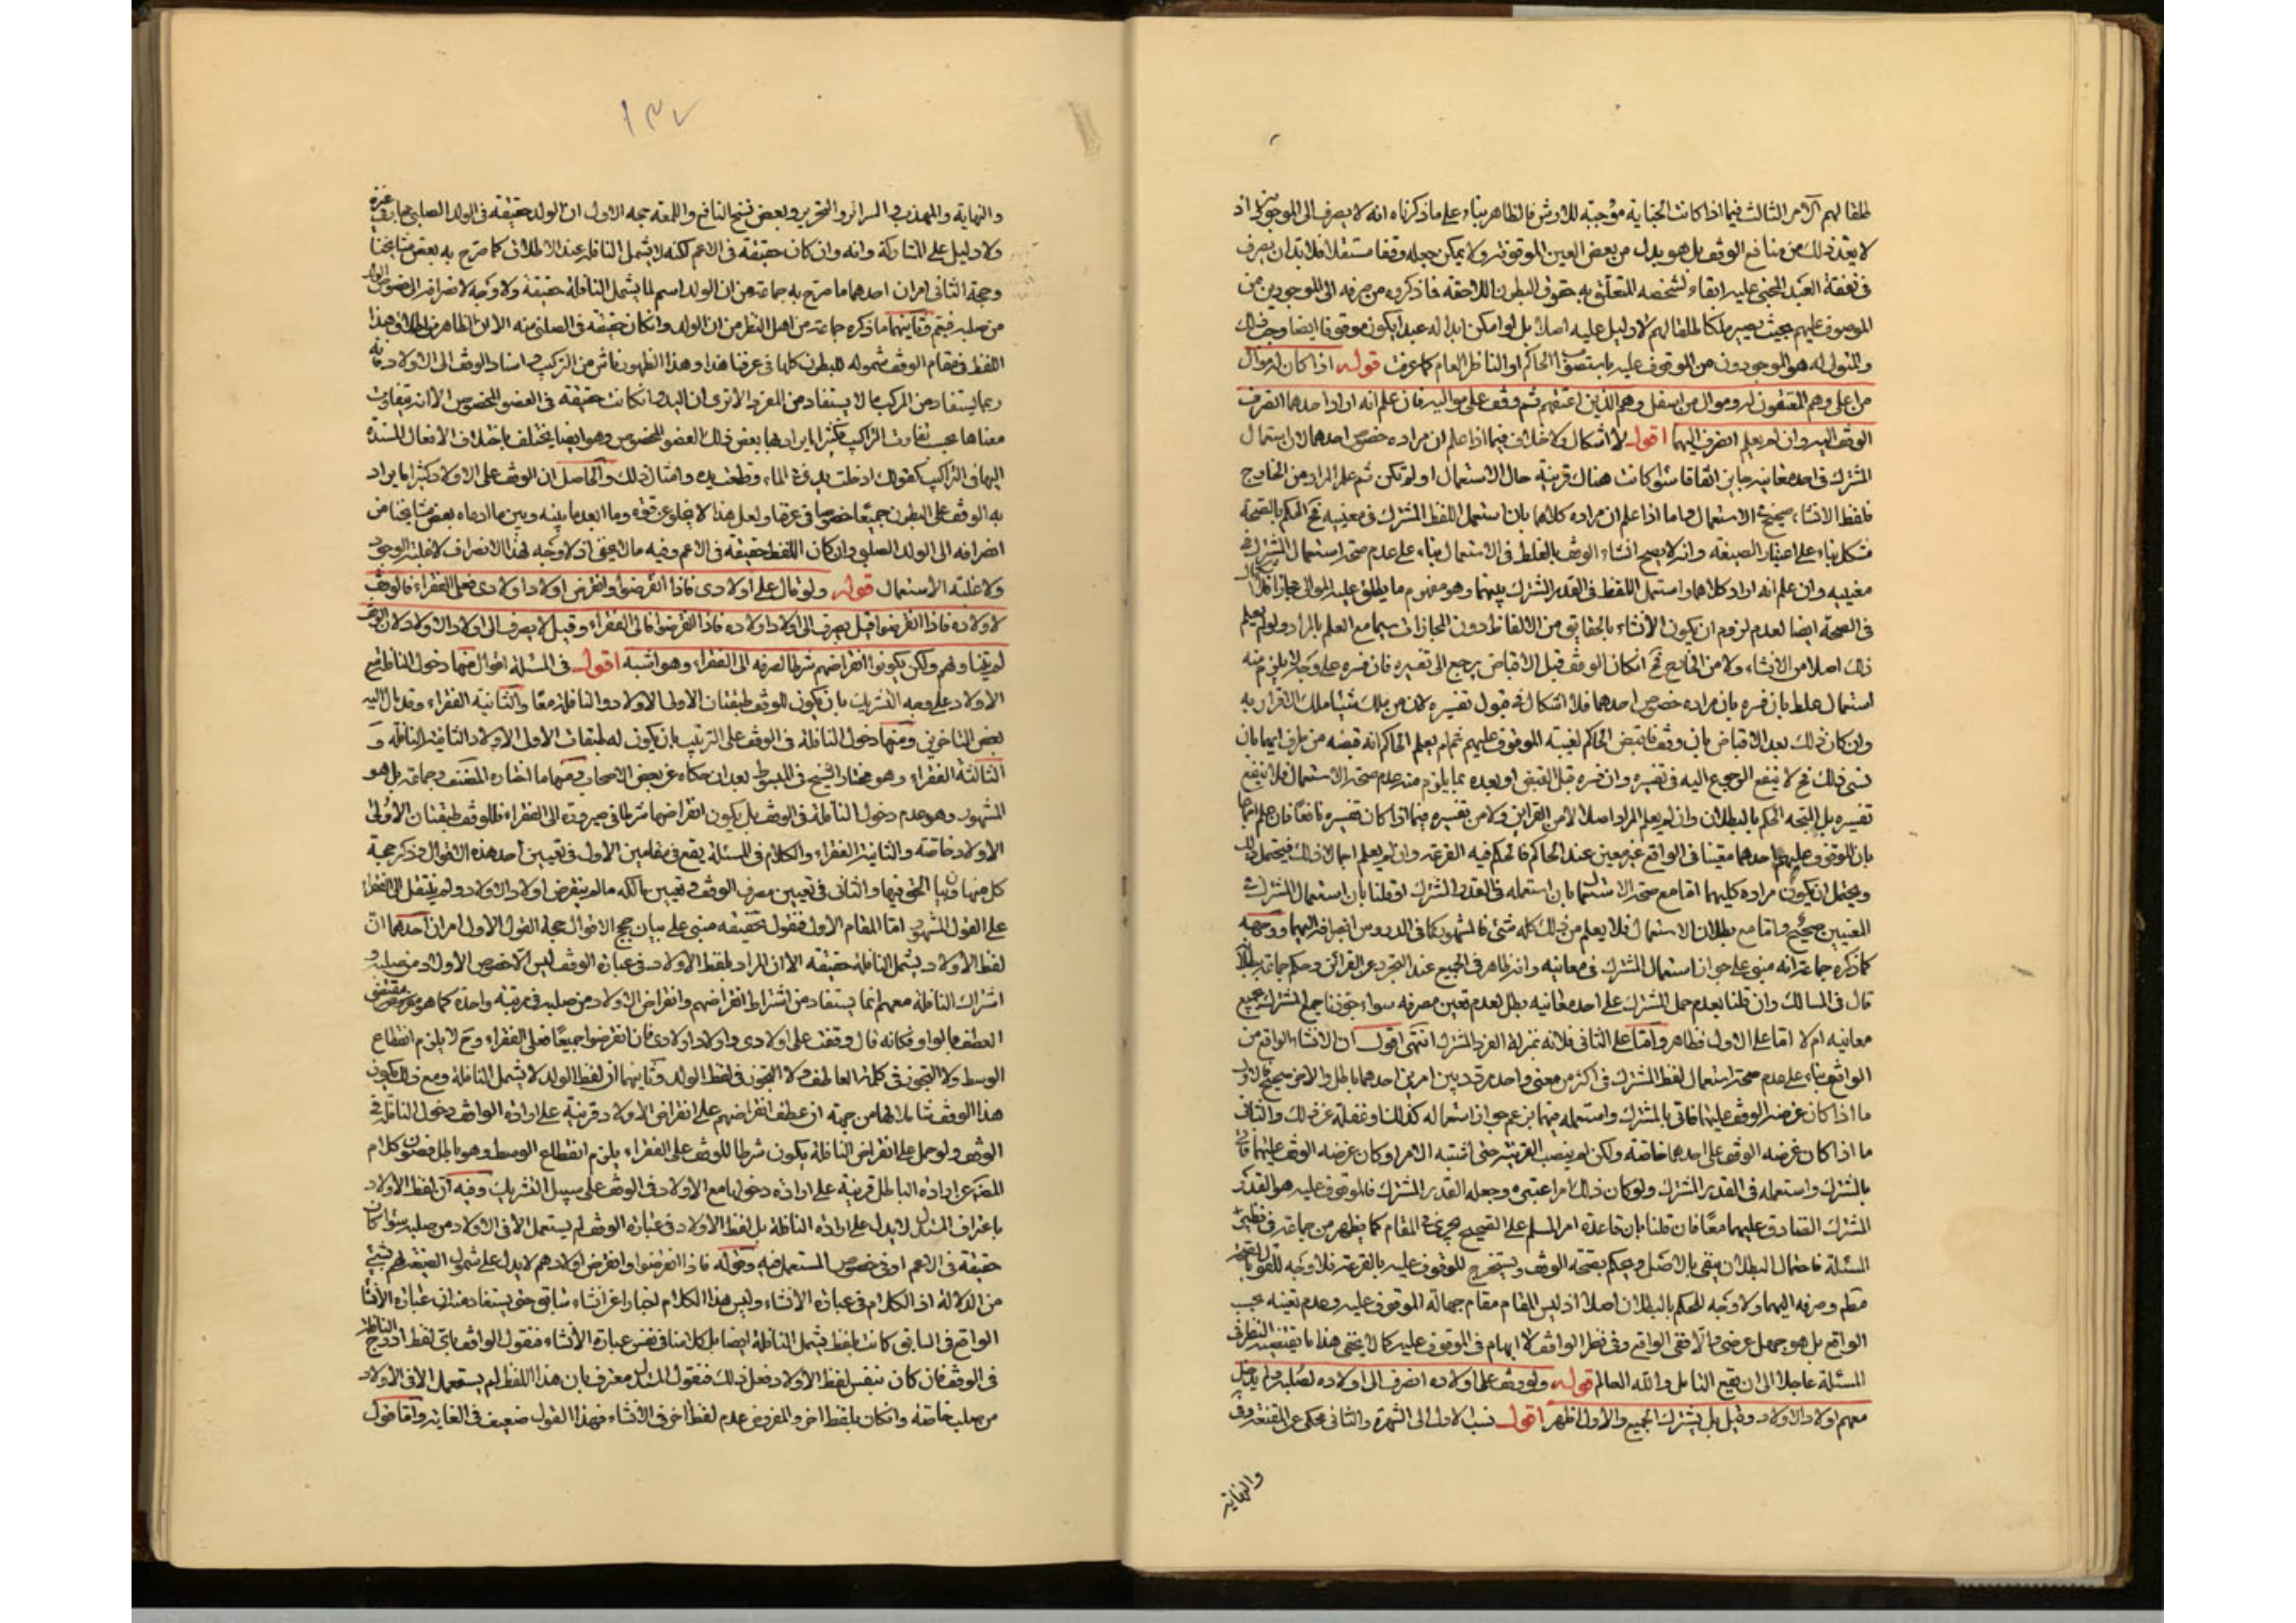 طلقا لهم الأمر الثالث فيما اذا كانت الجناية موجبة للارش فالظاهر بناء على ما ذكرناه انه لا يصرف الى الموجودين اذ
لا يعد ذلك من منافع الوقف بل هو بدل من بعض العين الموقوفة ولا يمكن جعله وقفا مستقلا فلابد ان يصرف
في نفقة العبد المجنى عليه ابقاء لشخصه المتعلق به حقوق البطون اللاحقة فما ذكروه من صرفه الى الموجودين من
الموقوف عليهم بحيث يصير ملكا طلقا لهم لا دليل عليه اصلا بل لو امكن ابداله عبدا يكون موقوفا ايضا وجب ذلك
والمتولى له هو الموجودون من الموقوف عليه باستصواب الحاكم او الناظر العام كما عرفت قوله اذا كان له موال
من اعلى وهم المعتقون له وموال من اسفل وهم الذين اعتقهم ثم وقف على مواليه فان علم انه اراد احدهما انصرف
الوقف اليه وان لم يعلم انصرف اليهما اقول لا اشكال ولا خلاف فيما اذا علم ان مراده خصوص احدهما لان استعمال
المشترك في احد معانيه جايز اتفاقا سواء كانت هناك قرينة حال الاستعمال او لم تكن ثم علم المراد من الخارج
فلفظ الانشاء صحيح الاستعمال واما اذا علم ان مراده كلاهما بان استعمل اللفظ المشترك في معنييه فح الحكم بالصحة
مشكل بناء على اعتبار الصيغة وانه لا يصح انشاء الوقف بالغلط في الاستعمال بناء على عدم صحة استعمال المشترك في
معنييه وان علم انه اراد كلاهما واستعمل اللفظ في القدر المشترك بينهما وهو مفهوم ما يطلق عليه الموالى مجازا فلا اشكال
في الصحة ايضا لعدم لزوم ان يكون الانشاء بالحقايق من الالفاظ دون المجازات سيما مع العلم بالمراد ولو لم يعلم
ذلك اصلا من الانشاء ولا من الخارج فح ان كان الوقف قبل الاقباض يرجع الى تفسيره فان فسره على وجه لا يلزم منه
استعمال غلط بان فسره بان مراده خصوص احدهما فلا اشكال في قبول تفسيره لان من ملك شيئا ملك الاقرار به
وان كان ذلك بعد الاقباض بان وقف فاقبض الحاكم لغيبة الموقوف عليهم ثم لم يعلم الحاكم انه قبضه من طرف ايهما بان
نسى ذلك فح لا ينفع الرجوع اليه في تفسيره وان فسره قبل القبض او بعده بما يلزم منه عدم صحة الاستعمال فلا ينفع
تفسيره بل المتجه الحكم بالبطلان وان لم يعلم المراد اصلا لا من القراين ولا من تفسيره فيما اذا كان تفسيره نافعا فان علم اجمالا
بان الموقوف عليهم احدهما معينا في الواقع غير معين عند الحاكم فالحكم فيه القرعة وان لم يعلم اجمالا ذلك فيحتمل ذلك
ويحتمل ان يكون مراده كليهما اما مع صحة الاستعمال بان استعمله في القدر المشترك او قلنا بان استعمال المشترك في
المعنيين صحيح واما مع بطلان الاستعمال فلا يعلم من ذلك كله شئ فالمشهور كما في الدروس انصرافه اليهما ووجهه
كما ذكره جماعة انه مبنى على جواز استعمال المشترك في معانيه وانه ظاهر في الجميع عند التجرد عن القرائن وحكم جماعة بالبطلان
قال في المسالك وان قلنا بعدم حمل المشترك على احد معانيه بطل لعدم تعين مصرفه سواء جوزنا حمل المشترك على جميع
معانيه ام لا اما على الاول فظاهر واما على الثاني فلانه بمنزلة الفرد المشترك انتهى اقول ان الانشاء الواقع من
الواقف بناء على عدم صحة استعمال لفظ المشترك في اكثر من معنى واحد مردد بين امرين احدهما باطل والاخر صحيح فالاول
ما اذا كان غرضه الوقف عليهما فاتى بالمشترك واستعمله فيهما بزعم جواز استعماله كذلك او غفلة عن ذلك والثاني
ما اذا كان غرضه الوقف على احدهما خاصة ولكن لم ينصب القرينة حتى اشتبه الامر او كان غرضه الوقف عليهما فاتى
بالمشترك واستعمله في القدر المشترك ولو كان ذلك امرا اعتبره وجعله القدر المشترك فالموقوف عليه هو القدر
المشترك الصادق عليهما معا فان قلنا بان قاعدة امر المسلم على الصحيح يجرى في المقام كما يظهر من جماعة في نظير
المسئلة فاحتمال البطلان ينفى بالاصل ويحكم بصحة الوقف ويستخرج الموقوف عليه بالقرعة فلا وجه للقول بالصحة
مطم وصرفه اليهما ولا وجه للحكم بالبطلان اصلا اذ ليس المقام مقام جهالة الموقوف عليه وعدم تعينه بحسب
الواقع بل هو مجمل عرضى والا ففى الواقع وفي نظر الواقف لا ابهام في الموقوف عليه كما لا يخفى هذا ما يقتضيه النظر في
المسئلة عاجلا الى ان يقع التامل والله العالم قوله ولو وقف على اولاده انصرف الى اولاده لصلبه ولم يدخل
معهم اولاد الاولاد وقيل بل يشترك الجميع والاول اظهر اقول نسب الاول الى الشهرة والثاني محكى عن المقنعة وفي
والنهاية
١٣٧
والنهاية والمهذب والسرائر والتحرير وبعض نسخ النافع واللمعة حجة الاول ان الولد حقيقة في الولد الصلبى مجاز في غيره
ولا دليل على المشاركة وانه وان كان حقيقة في الاعم لكنه لا يشمل النافلة عند الاطلاق كما صرح به بعض مشايخنا
وحجة الثاني امران احدهما ما صرح به جماعة من ان الولد اسم لما يشمل النافلة حقيقة ولا وجه لانصرافه الى خصوص الولد
من صلبه فيتم وثانيهما ما ذكره جماعة من اهل النظر من ان الولد وان كان حقيقة في الصلبى منه الا ان الظاهر من اطلاق هذا
اللفظ في مقام الوقف شموله للبطون كلها في عرفنا هذا وهذا الظهور ناش من التركيب و اسناد الوقف الى الاولاد فانه
ربما يستفاد من المركب ما لا يستفاد من المفرد الا ترى ان اليد وان كانت حقيقة في العضو المخصوص الا انه يتفاوت
معناها بحسب تفاوت التراكيب فكثيرا ما يراد بها بعض ذلك العضو المخصوص وهو ايضا يختلف باختلاف الافعال المسندة
اليها في التراكيب كقولك ادخلت يدي في الماء وقطعت يده وامثال ذلك والحاصل ان الوقف على الاولاد كثيرا ما يراد
به الوقف على البطون جميعا خصوصا في عرفنا ولعل هذا لا يخلو عن قوة وما ابعد ما بينه وبين ما ادعاه بعض مشايخنا من
انصرافه الى الولد الصلبى وان كان اللفظ حقيقة في الاعم وفيه ما لا يخفى اذ لا وجه لهذا الانصراف لا غلبة الوجود
ولا غلبة الاستعمال قوله ولو قال على اولادى فاذا انقرضوا وانقرض اولاد اولادى فعلى الفقراء فالوقف
لاولاده فاذا انقرضوا قيل يصرف الى اولاد اولاده فاذا انقرضوا فالى الفقراء وقيل لا يصرف الى اولاد الاولاد لان الوقف
لم يتناولهم ولكن يكون انقراضهم شرطا لصرفه الى الفقراء وهو اشبه اقول في المسئلة اقوال منها دخول النافلة مع
الاولاد على وجه التشريك بان يكون للوقف طبقتان الاولى الاولاد والنافلة معا والثانية الفقراء وقد مال اليه
بعض المتاخرين ومنها دخول النافلة في الوقف على الترتيب بان يكون له طبقات الاول الاولاد الثانية النافلة و
الثالثة الفقراء وهو مختار الشيخ في المبسوط بعد ان حكاه عن بعض الاصحاب ومنها ما اختاره المصنف وجماعة بل هو
المشهور وهو عدم دخول النافلة في الوقف بل يكون انقراضها شرطا في صيرورته الى الفقراء فللوقف طبقتان الاولى
الاولاد خاصة والثانية الفقراء والكلام في المسئلة يقع في مقامين الاول في تعيين احد هذه الاقوال وذكر حجة
كل منها وبيان الحق فيها والثاني في تعيين مصرف الوقف وتعيين مالكه ما لم ينقرض اولاد الاولاد ولم ينتقل الى الفقراء
على القول المشهور اما المقام الاول فنقول تحقيقه مبنى على بيان حجج الاقوال حجة القول الاول امران احدهما ان
لفظ الاولاد يشمل النافلة حقيقة الا ان المراد بلفظ الاولاد في عبارة الوقف ليس الا خصوص الاولاد من صلبه و
اشتراك النافلة معهم انما يستفاد من اشتراط انقراضهم وانقراض الاولاد من صلبه في مرتبة واحدة كما هو مقتضى
العطف بالواو فكانه قال وقفت على اولادى واولاد اولادى فان انقرضوا جميعا فعلى الفقراء وح لا يلزم انقطاع
الوسط ولا التجوز في كلمة العاطف ولا التجوز في لفظ الولد وثانيهما ان لفظ الولد لا يشمل النافلة ومع ذلك يكون
هذا الوقف شاملا لها من جهة ان عطف انقراضهم على انقراض الاولاد قرينة على ارادة الواقف دخول النافلة في
الوقف ولو حمل على انقراض النافلة يكون شرطا للوقف على الفقراء يلزم انقطاع الوسط وهو باطل فصون كلام
المتكلم عن ارادة الباطل قرينة على ارادة دخولها مع الاولاد في الوقف على سبيل التشريك وفيه ان لفظ الاولاد
باعتراف المستدل لا يدل على ارادة النافلة بل لفظ الاولاد في عبارة الوقف لم يستعمل الا في الاولاد من صلبه سواء كان
حقيقة في الاعم او في خصوص المستعمل فيه وقوله فاذا انقرضوا وانقرض اولادهم لا يدل على شمول الصيغة لهم بشئ
من الدلالة اذ الكلام في عبارة الانشاء وليس هذا الكلام اخبارا عن انشاء سابق حتى يستفاد منه ان عبارة الانشاء
الواقع في السابق كانت بلفظ يشمل النافلة ايضا بل كلامنا في نفس عبارة الانشاء فنقول الواقف باى لفظ ادرج النافلة
في الوقف فان كان بنفس لفظ الاولاد فعل ذلك فنقول المستدل معترف بان هذا اللفظ لم يستعمل الا في الاولاد
من صلبه خاصة وان كان بلفظ اخر والمفروض عدم لفظ اخر في الانشاء فهذا القول ضعيف في الغاية واما قول